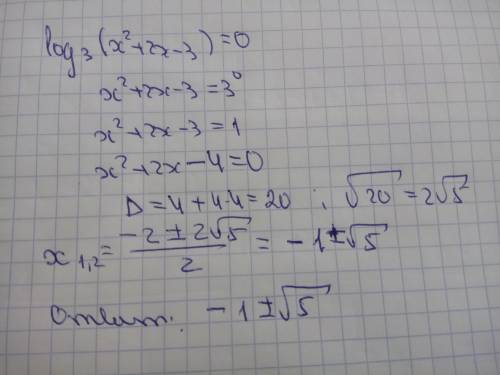 log₃(x²+2x-3)=0
x²+2x-3=3⁰
x²+2x-3=1
x²+2x-4=0
D=4+4·4=20 ; √20=2√5
x₁,₂=(-2±2√5)/2=-1±√5
Ответ: -1±√5